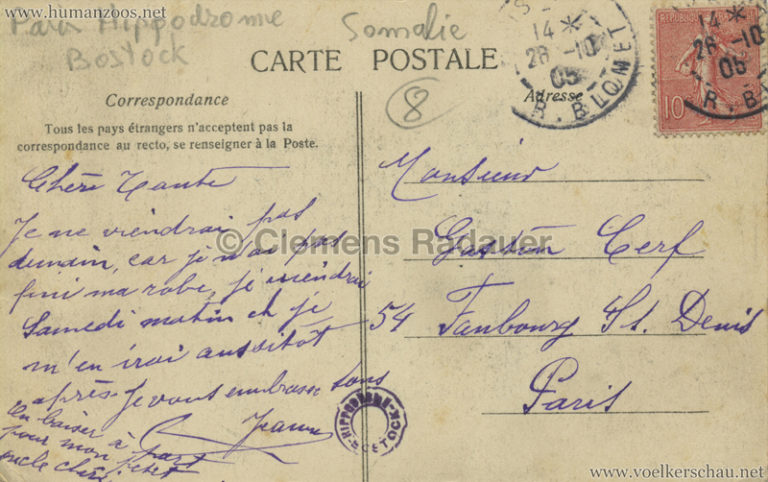 © www.humanzoos.net
Paris Hippodrome
Bostock
Somalie
8
CARTE POSTALE
Correspondance
Adresse
Tous les pays étrangers n'acceptent pas la
correspondance au recto, se renseigner à la Poste.
14 *
28 -10
05
R. BLOMET
REPUBLIQUE
10
14 *
28 -10
05
R. BL
Chère Tante
Je ne viendrai pas
demain, car je n'ai pas
fini ma robe, je viendrai
Samedi matin et je
m'en irai aussitôt
après Je vous embrasse tous
Jeanne
un baiser à part
pour mon petit
oncle chéri
Monsieur
Gaston Cerf
54 Faubourg St. Denis
Paris
HIPPODROME
BOSTOCK
© Clemens Radauer
© www.voelkerschau.net